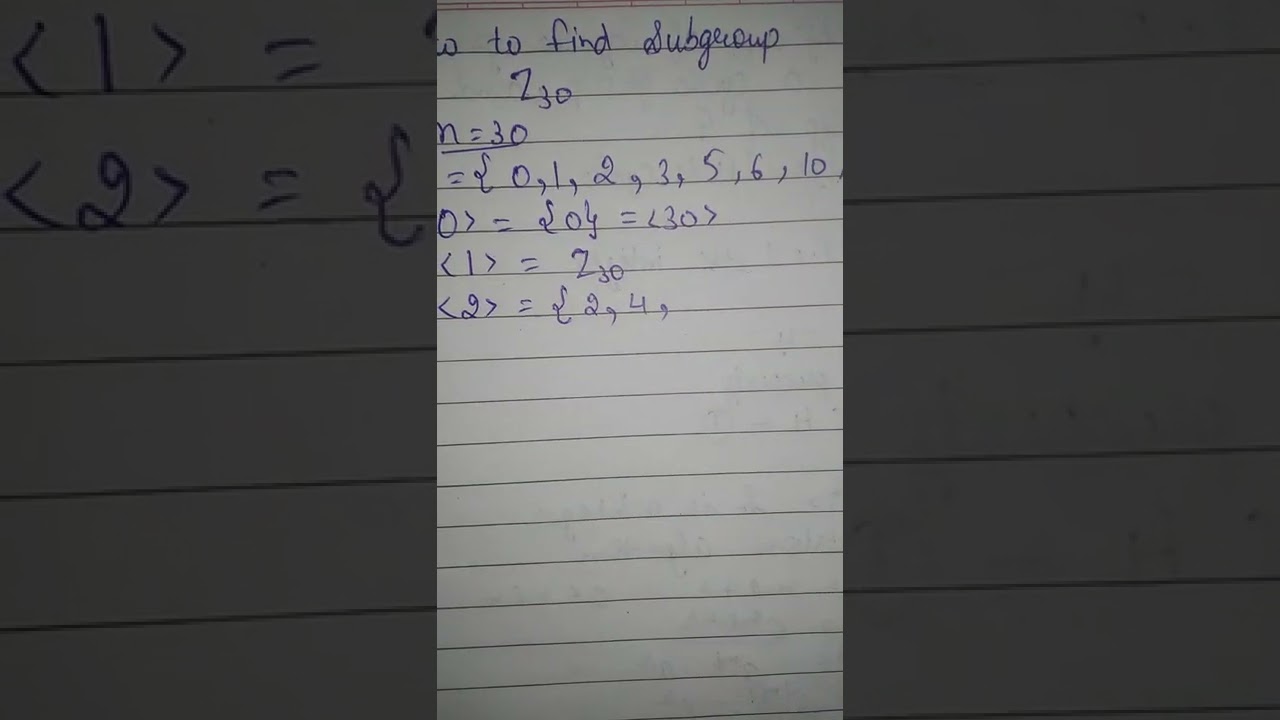 to find Subgroup
Z30
n=30
={ 0,1,2,3,5,6,10,
0> = {0} = <30>
<1> = Z30
<2> = {2,4,
<1> =
<2> = {